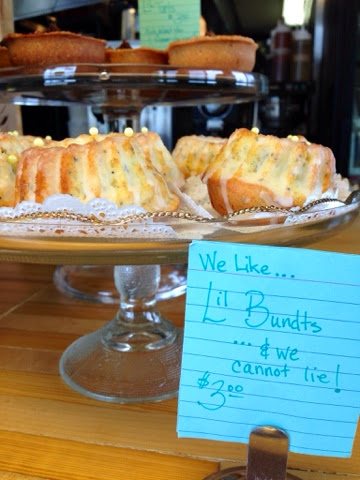 We Like...
Lil Bundts
...& we
cannot lie!
$3.00